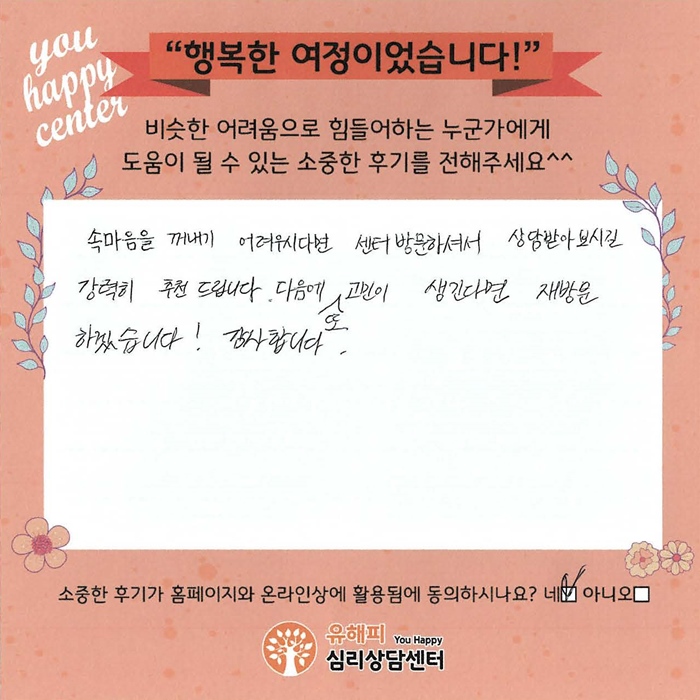 you
happy
center
“행복한 여정이었습니다!”
비슷한 어려움으로 힘들어하는 누군가에게
도움이 될 수 있는 소중한 후기를 전해주세요^^
속마음을 꺼내기 어려우시다면 센터 방문하셔서 상담받아보시길
강력히 추천 드립니다. 다음에 또 고민이 생긴다면 재방문
하겠습니다! 감사합니다.
소중한 후기가 홈페이지와 온라인상에 활용됨에 동의하시나요? 네☑ 아니오□
유해피 You Happy
심리상담센터